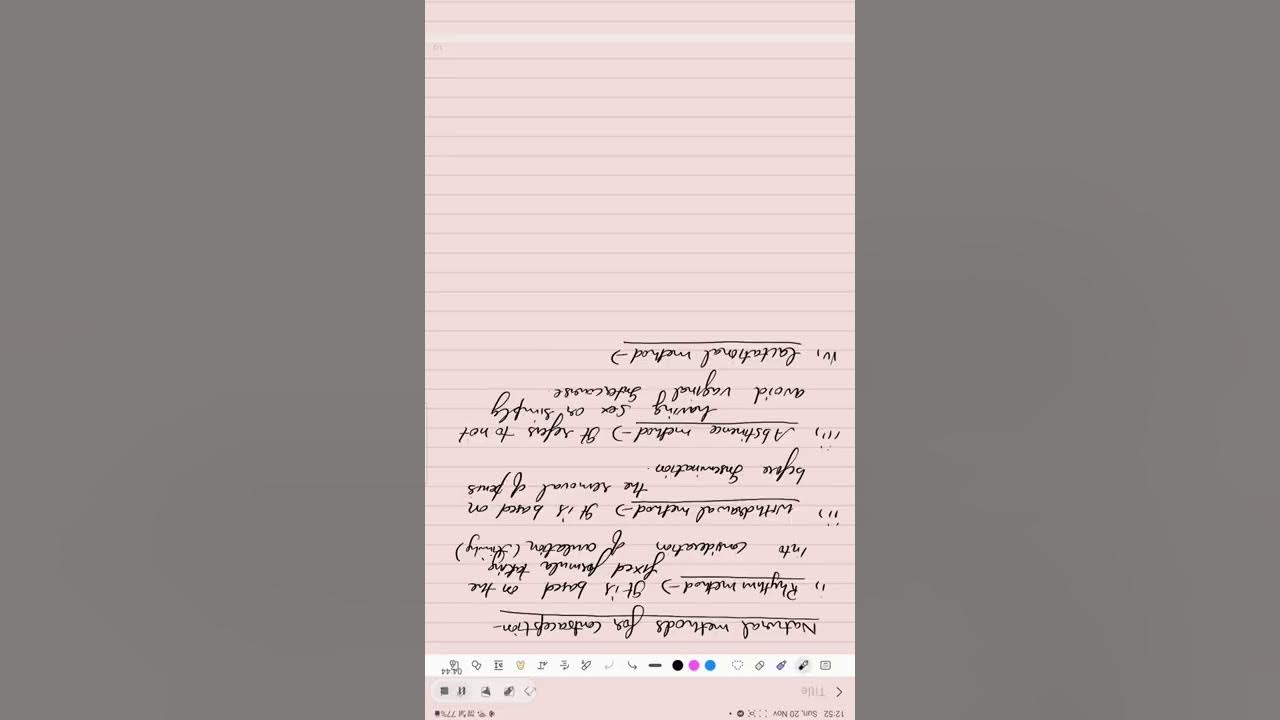 12:52 Sun, 20 Nov
77%
Title
04:44
Natural methods for contraception-
i) Rhythm method → It is based on the
fixed formula taking
into consideration of ovulation
ii) Withdrawal method → It is based on
the removal of penis
before Insemination.
iii) Abstinence method → It refers to not
having sex or simply
avoid vaginal Intercourse.
iv) Lactational method →